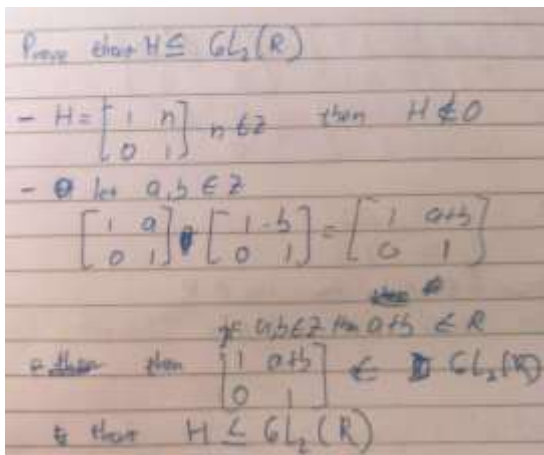 Prove that H ≤ GL₂(R)
- H = [1 n; 0 1] n ∈ Z then H ∉ 0
- let a,b ∈ Z
[1 a; 0 1] [1 b; 0 1] = [1 a+b; 0 1]
a,b ∈ Z then a+b ∈ R
then [1 a+b; 0 1] ∈ GL₂(R)
then H ≤ GL₂(R)